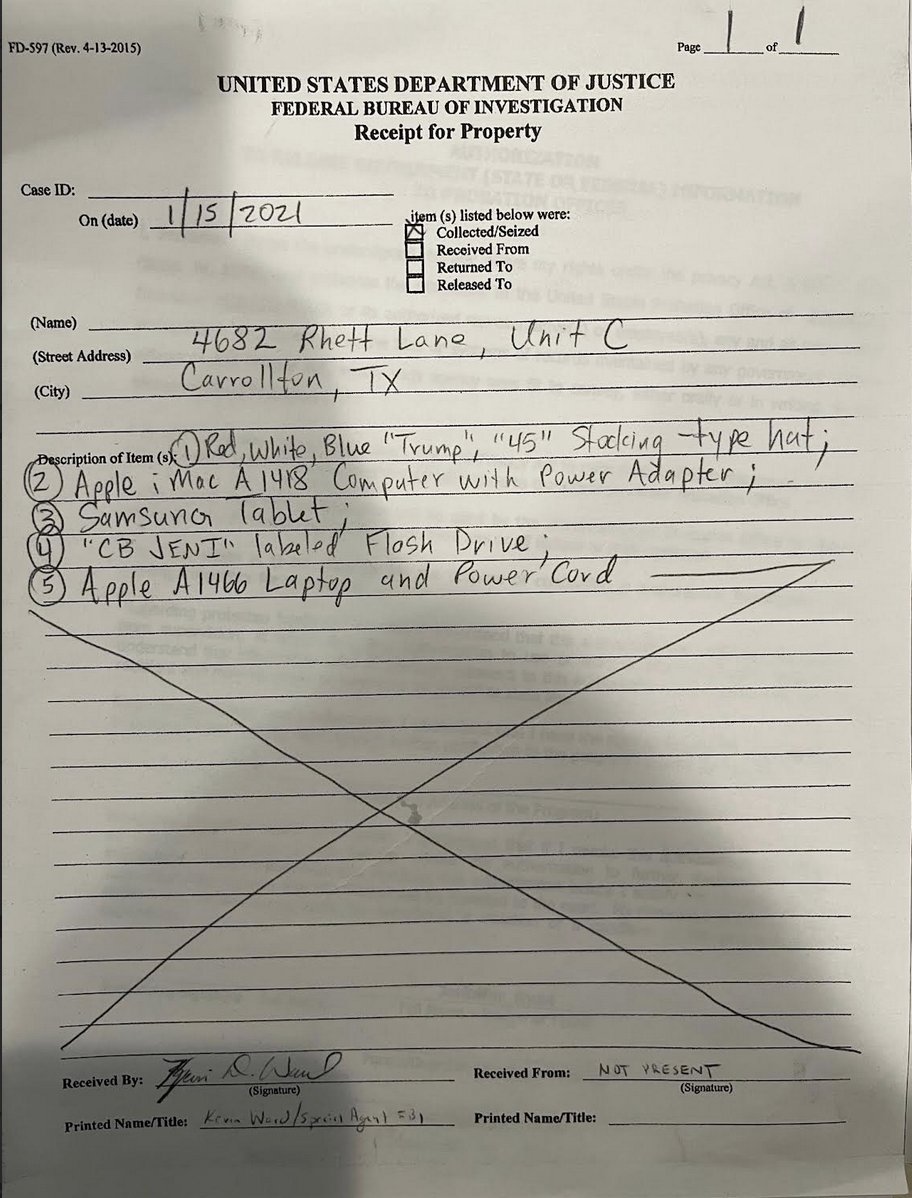 FD-597 (Rev. 4-13-2015)
Page 1 of 1
UNITED STATES DEPARTMENT OF JUSTICE
FEDERAL BUREAU OF INVESTIGATION
Receipt for Property
Case ID:
On (date) 1/15/2021
item (s) listed below were:
Collected/Seized
Received From
Returned To
Released To
(Name)
(Street Address) 4682 Rhett Lane, Unit C
(City) Carrollton, TX
Description of Item (s): ① Red, White, Blue "Trump", "45" Stocking-type hat;
② Apple iMac A1418 Computer with Power Adapter;
③ Samsung Tablet;
④ "CB JENI" labeled Flash Drive;
⑤ Apple A1466 Laptop and Power Cord
Received By: D. Ward
(Signature)
Received From: NOT PRESENT
(Signature)
Printed Name/Title: Kevin Ward/Special Agent FBI
Printed Name/Title: